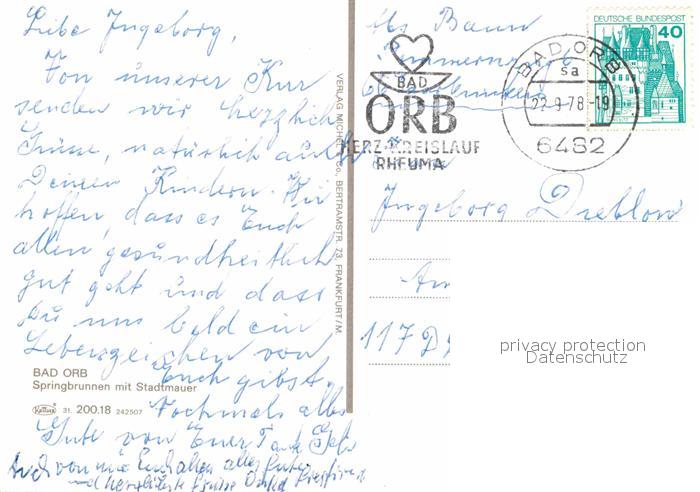 Liebe Ingeborg,
Von unserer Kur
senden wir herzlich
Grüße, natürlich auch
Deinen Kindern. Wir
hoffen, dass es Euch
allen gesundheitlich
gut geht und dass
Du uns bald ein
Lebenszeichen von
Euch gibst.
Nochmals alles
Gute von Euer Tante
Auch von mir Euch allen alles Gute
und herzlichste Grüsse Onkel
BAD ORB
Springbrunnen mit Stadtmauer
31. 200.18 242507
VERLAG MICHEL & Co., BERTRAMSTR. 73, FRANKFURT/M.
Abs Baum
BAD
ORB
HERZ-KREISLAUF
RHEUMA
BAD ORB
sa
23.9.78-19
6482
DEUTSCHE BUNDESPOST
40
Ingeborg Dreblow
An
117
privacy protection
Datenschutz